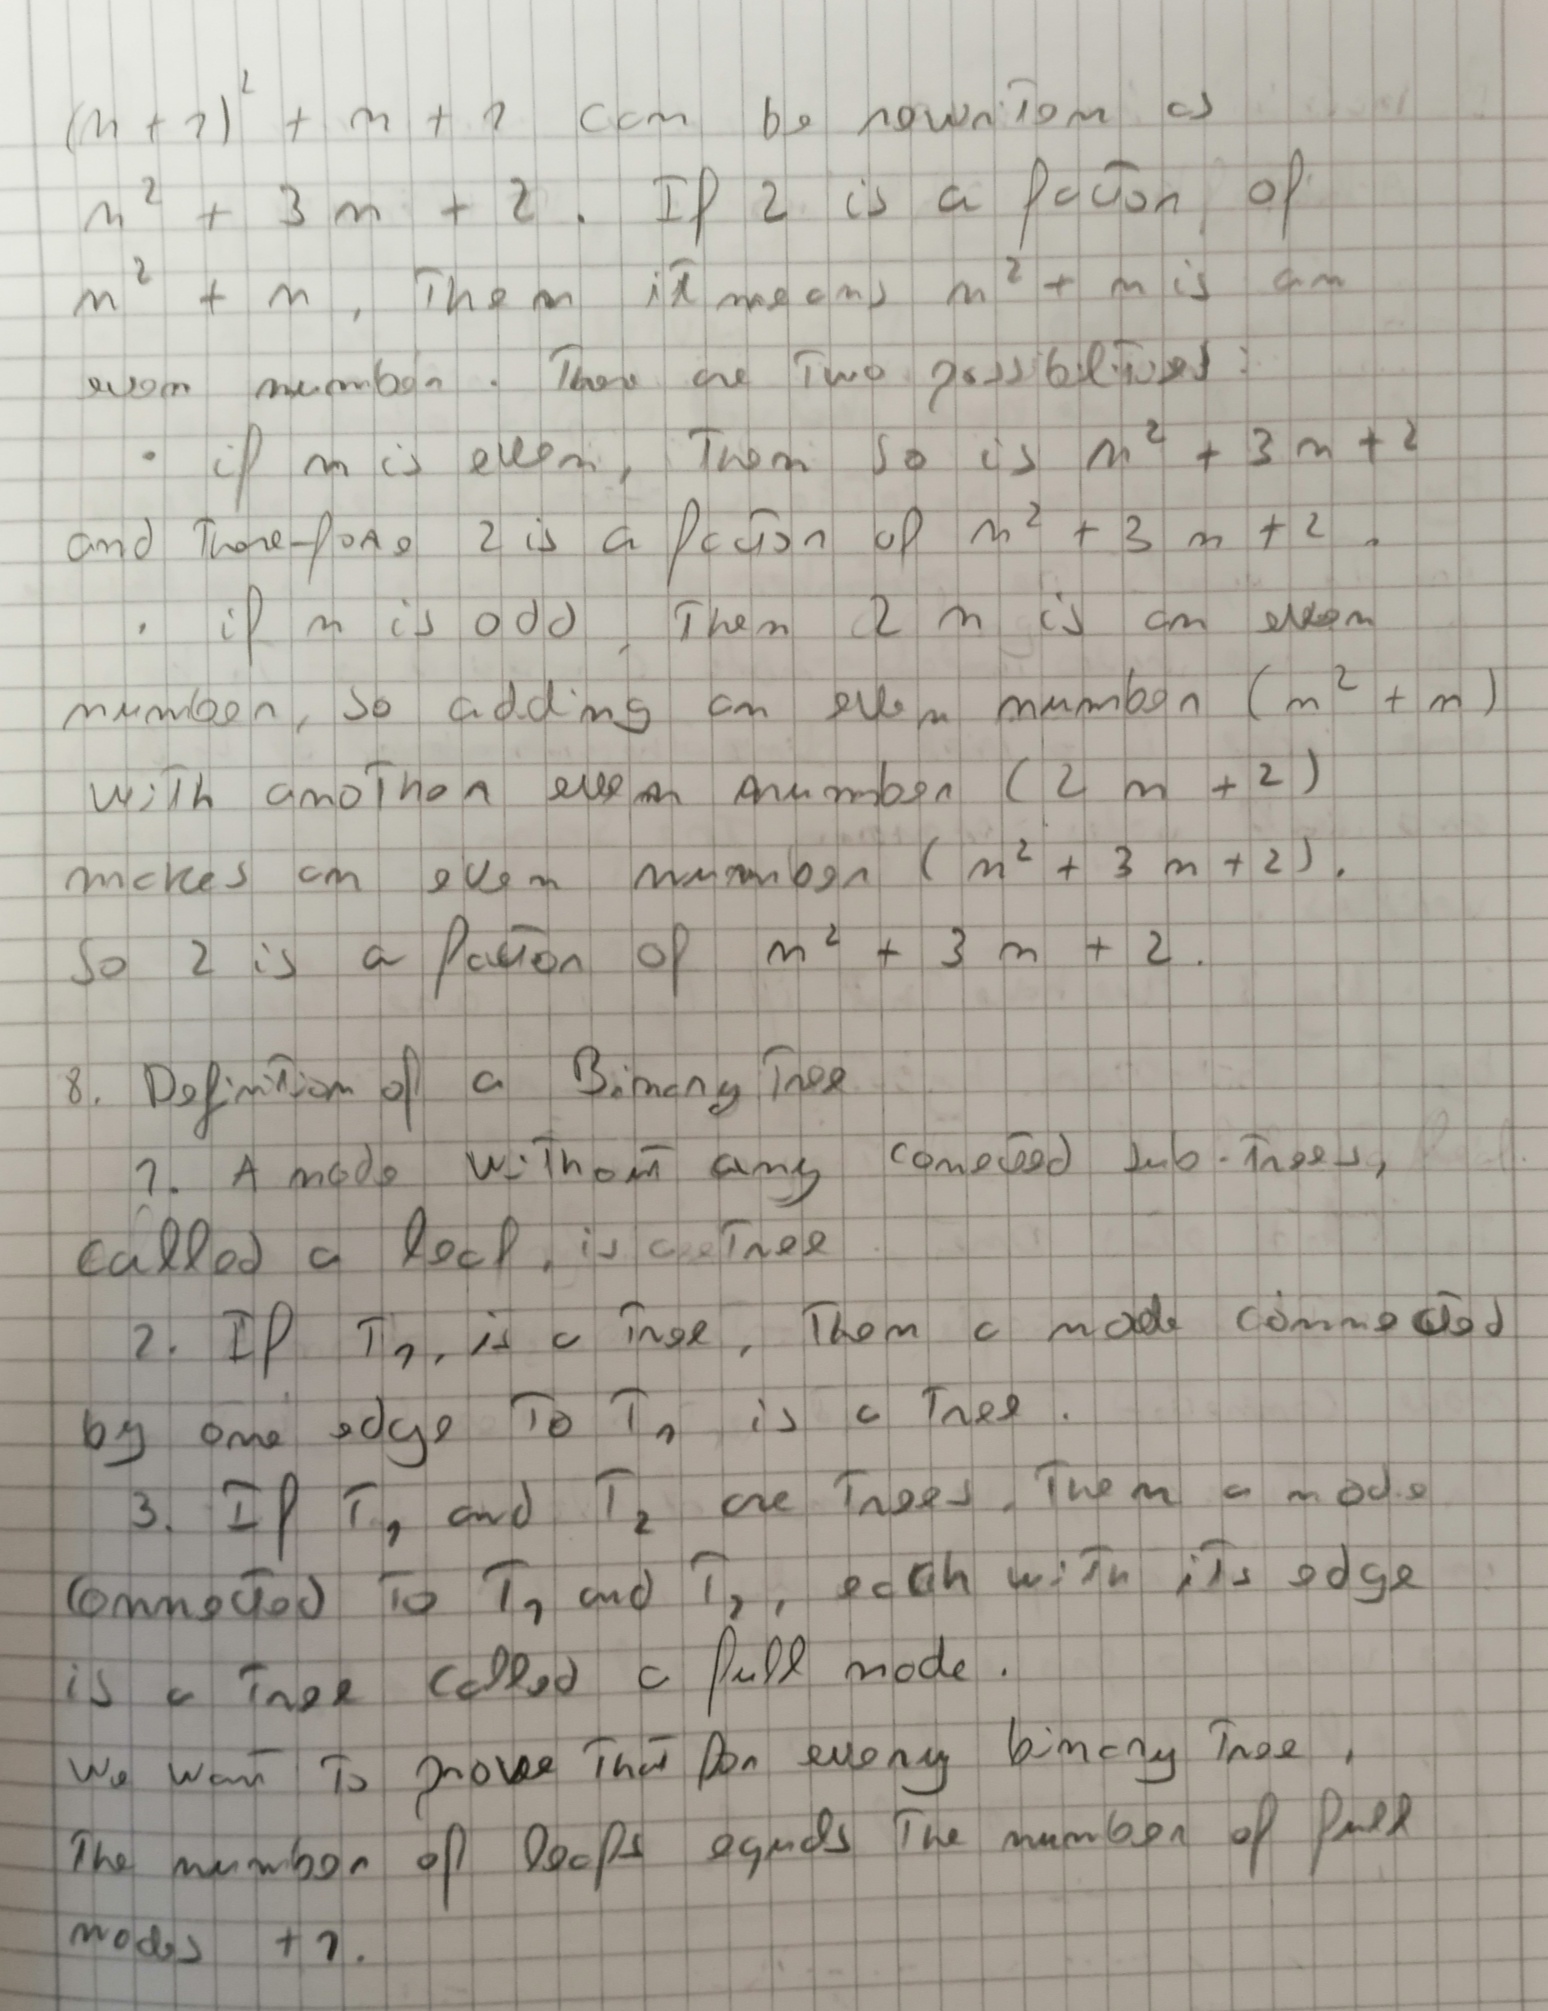 (n+1)² + n + 1 can be rewriten as
n² + 3n + 2. If 2 is a factor of
n² + n, then it means n² + n is an
even number. There are two possibilities:
• if n is even, then so is n² + 3n + 2
and therefore 2 is a factor of n² + 3n + 2.
• if n is odd, then 2n is an even
number, so adding an even number (n² + n)
with another even number (2n + 2)
makes an even number (n² + 3n + 2).
So 2 is a factor of n² + 3n + 2.
8. Definition of a Binary Tree
1. A node without any conected sub-trees,
called a leaf, is a tree
2. If T₁, is a tree, then a node connected
by one edge to T₁ is a tree.
3. If T₁ and T₂ are trees, then a node
connected to T₁ and T₂, each with its edge
is a tree called a full node.
We want to prove that for every binary tree,
the number of leafs equals the number of full
nodes +1.